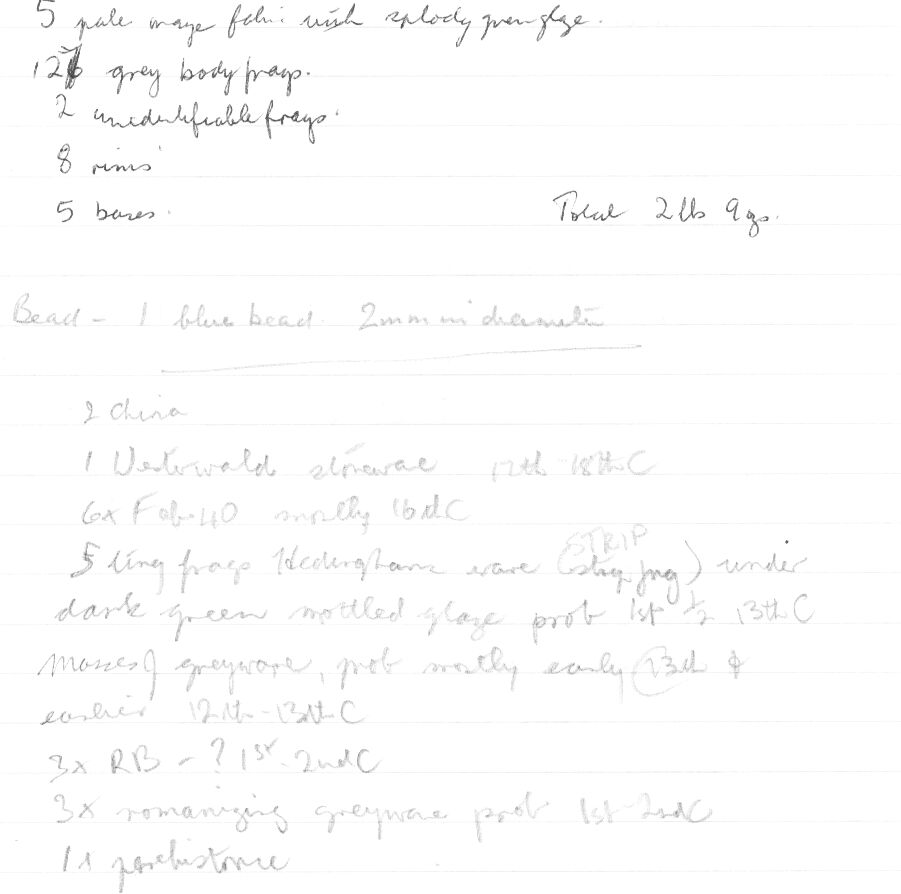 5 pale orange fabric with splody green glaze.
127 grey body frags.
2 unidentifiable frags.
8 rims
5 bases.
Total 2 lb 9 ozs.
Bead - 1 blue bead. 2mm in diameter
2 China
1 Westerwald stoneware 17th-18thC
6x Fab 40 mostly 16thC
STRIP
5 tiny frags Hedingham ware ( ) under
dark green mottled glaze prob 1st ½ 13thC
Masses of greyware, prob mostly early 13th &
earlier 12th-13thC
3x RB - ? 1st-2ndC
3x romanizing greyware prob 1st-2ndC
1x prehistoric